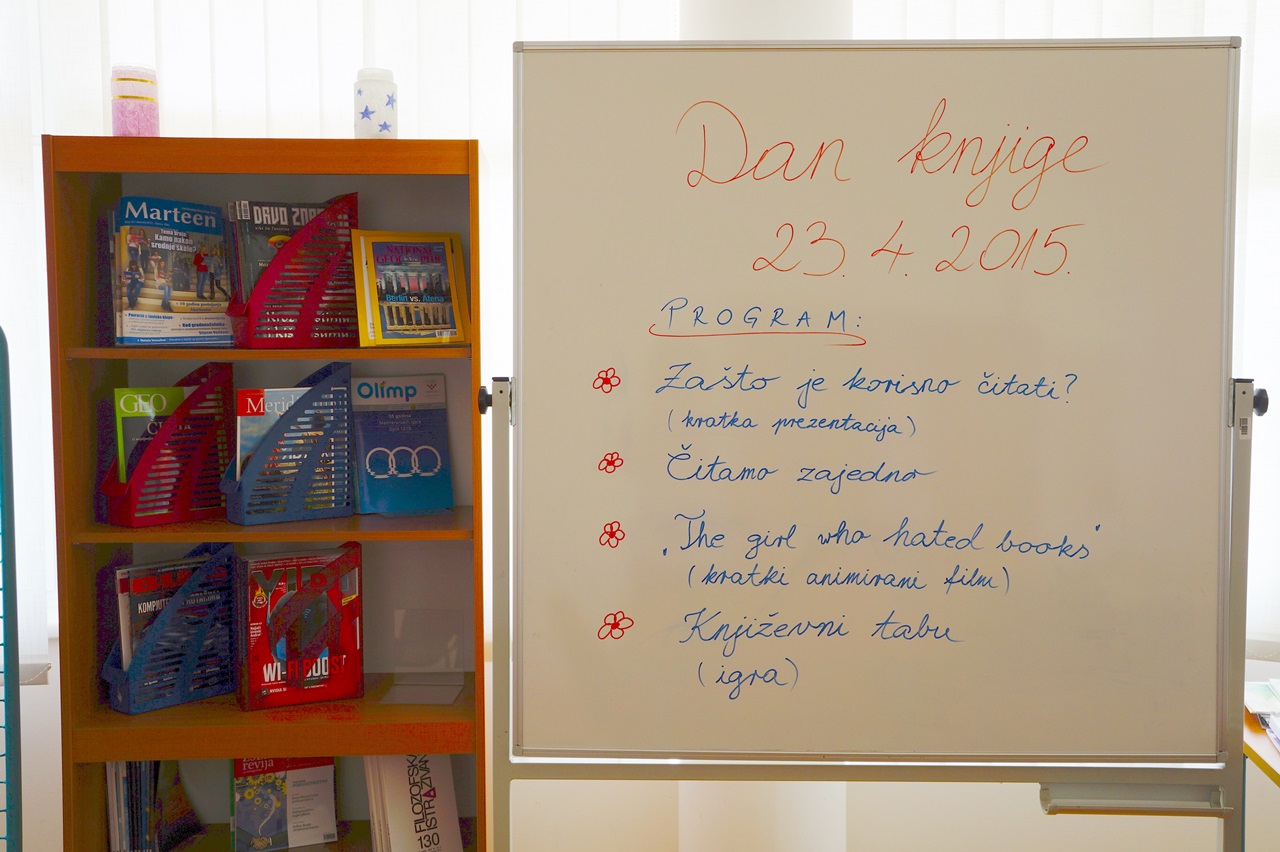 Dan knjige
23. 4. 2015.
PROGRAM:
Zašto je korisno čitati?
(kratka prezentacija)
Čitamo zajedno
„The girl who hated books“
(kratki animirani film)
Književni tabu
(igra)
Marteen
Tema broja
Kamo nakon
srednje škole?
DRVO ZNA
NATIONAL
GEOGRAPHIC
Berlin vs. Atena
GEO
Merid
Olimp
BUG
VIDI
WI-FI BOOST
revija
FILOZOFSKA
ISTRAŽIVANJA
130